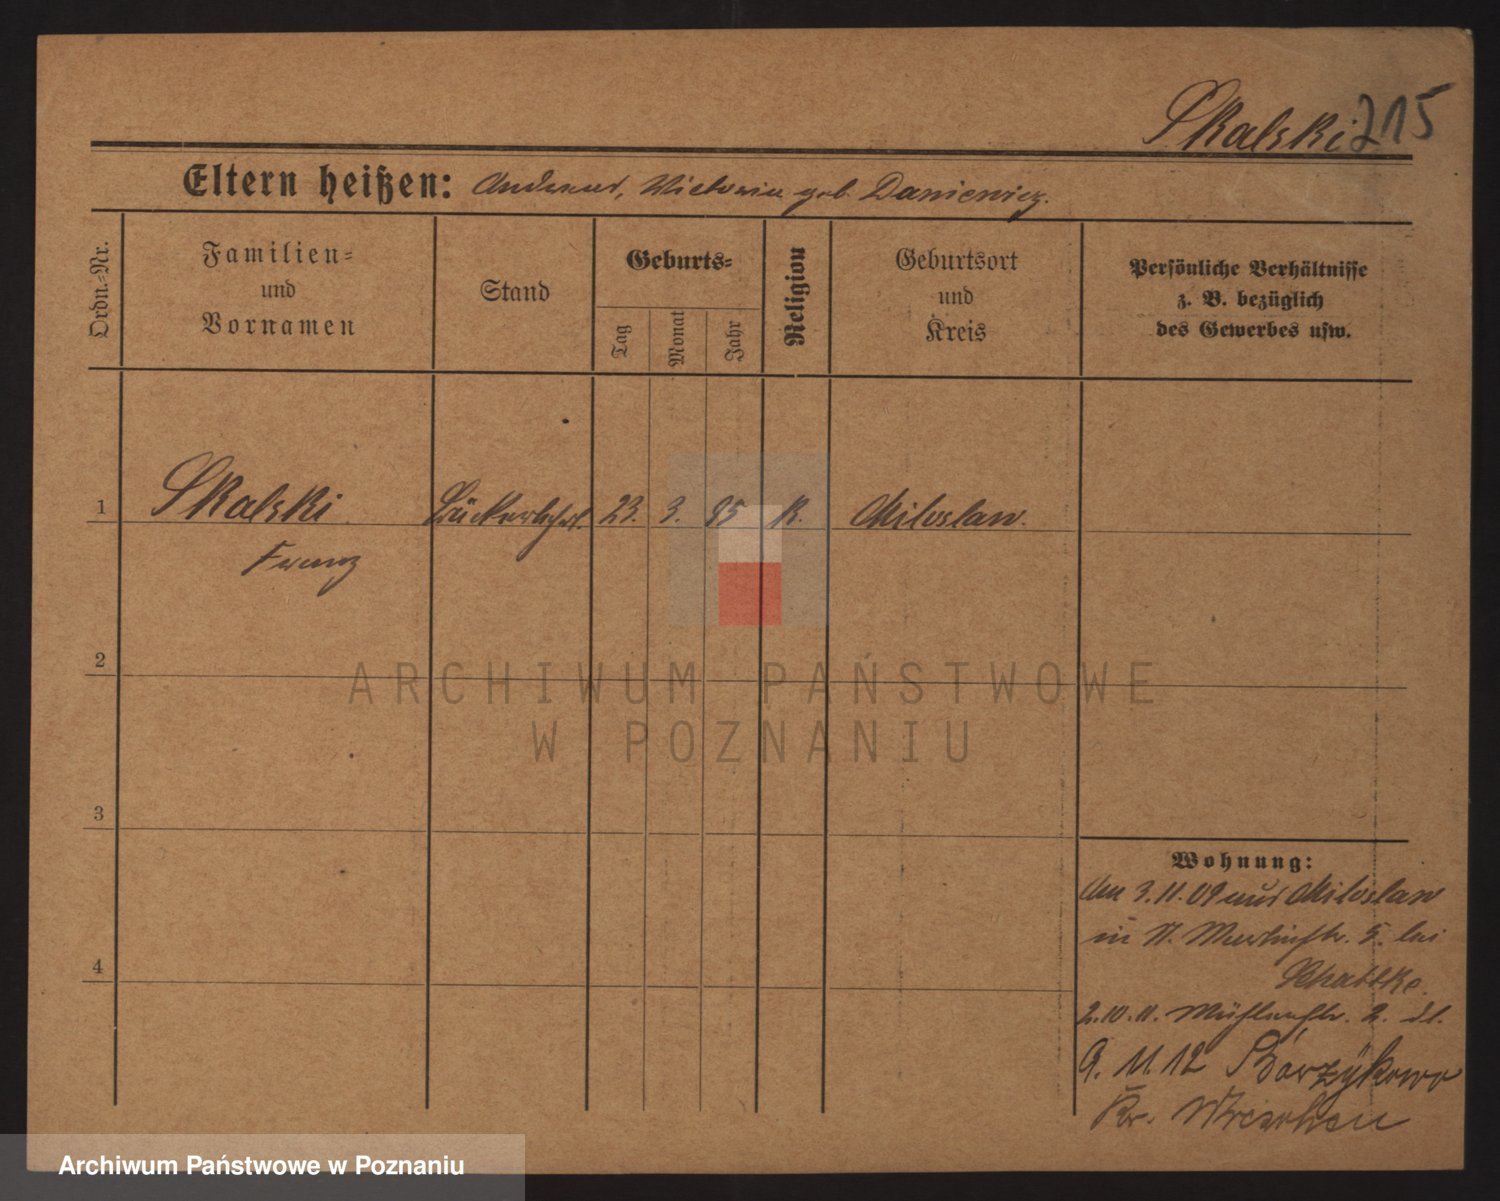 Skalski 215
Eltern heißen: Andreas, Victoria geb. Daniewicz.
Ordn.-Nr.
Familien-
und
Vornamen
Stand
Geburts-
Tag
Monat
Jahr
Religion
Geburtsort
und
Kreis
Persönliche Verhältnisse
z. B. bezüglich
des Gewerbes usw.
1 Skalski Bäckerlehrl. 23. 3. 95 K. Miloslaw.
Franz
2
3
4
Wohnung:
Am 3.11.09 aus Miloslaw
in St. Martinstr. 5. bei
Schattke.
2.10.11. Mühlenstr. 2.
9. 11. 12 Borzykowo
Kr. Wreschen
ARCHIWUM PAŃSTWOWE
W POZNANIU
Archiwum Państwowe w Poznaniu